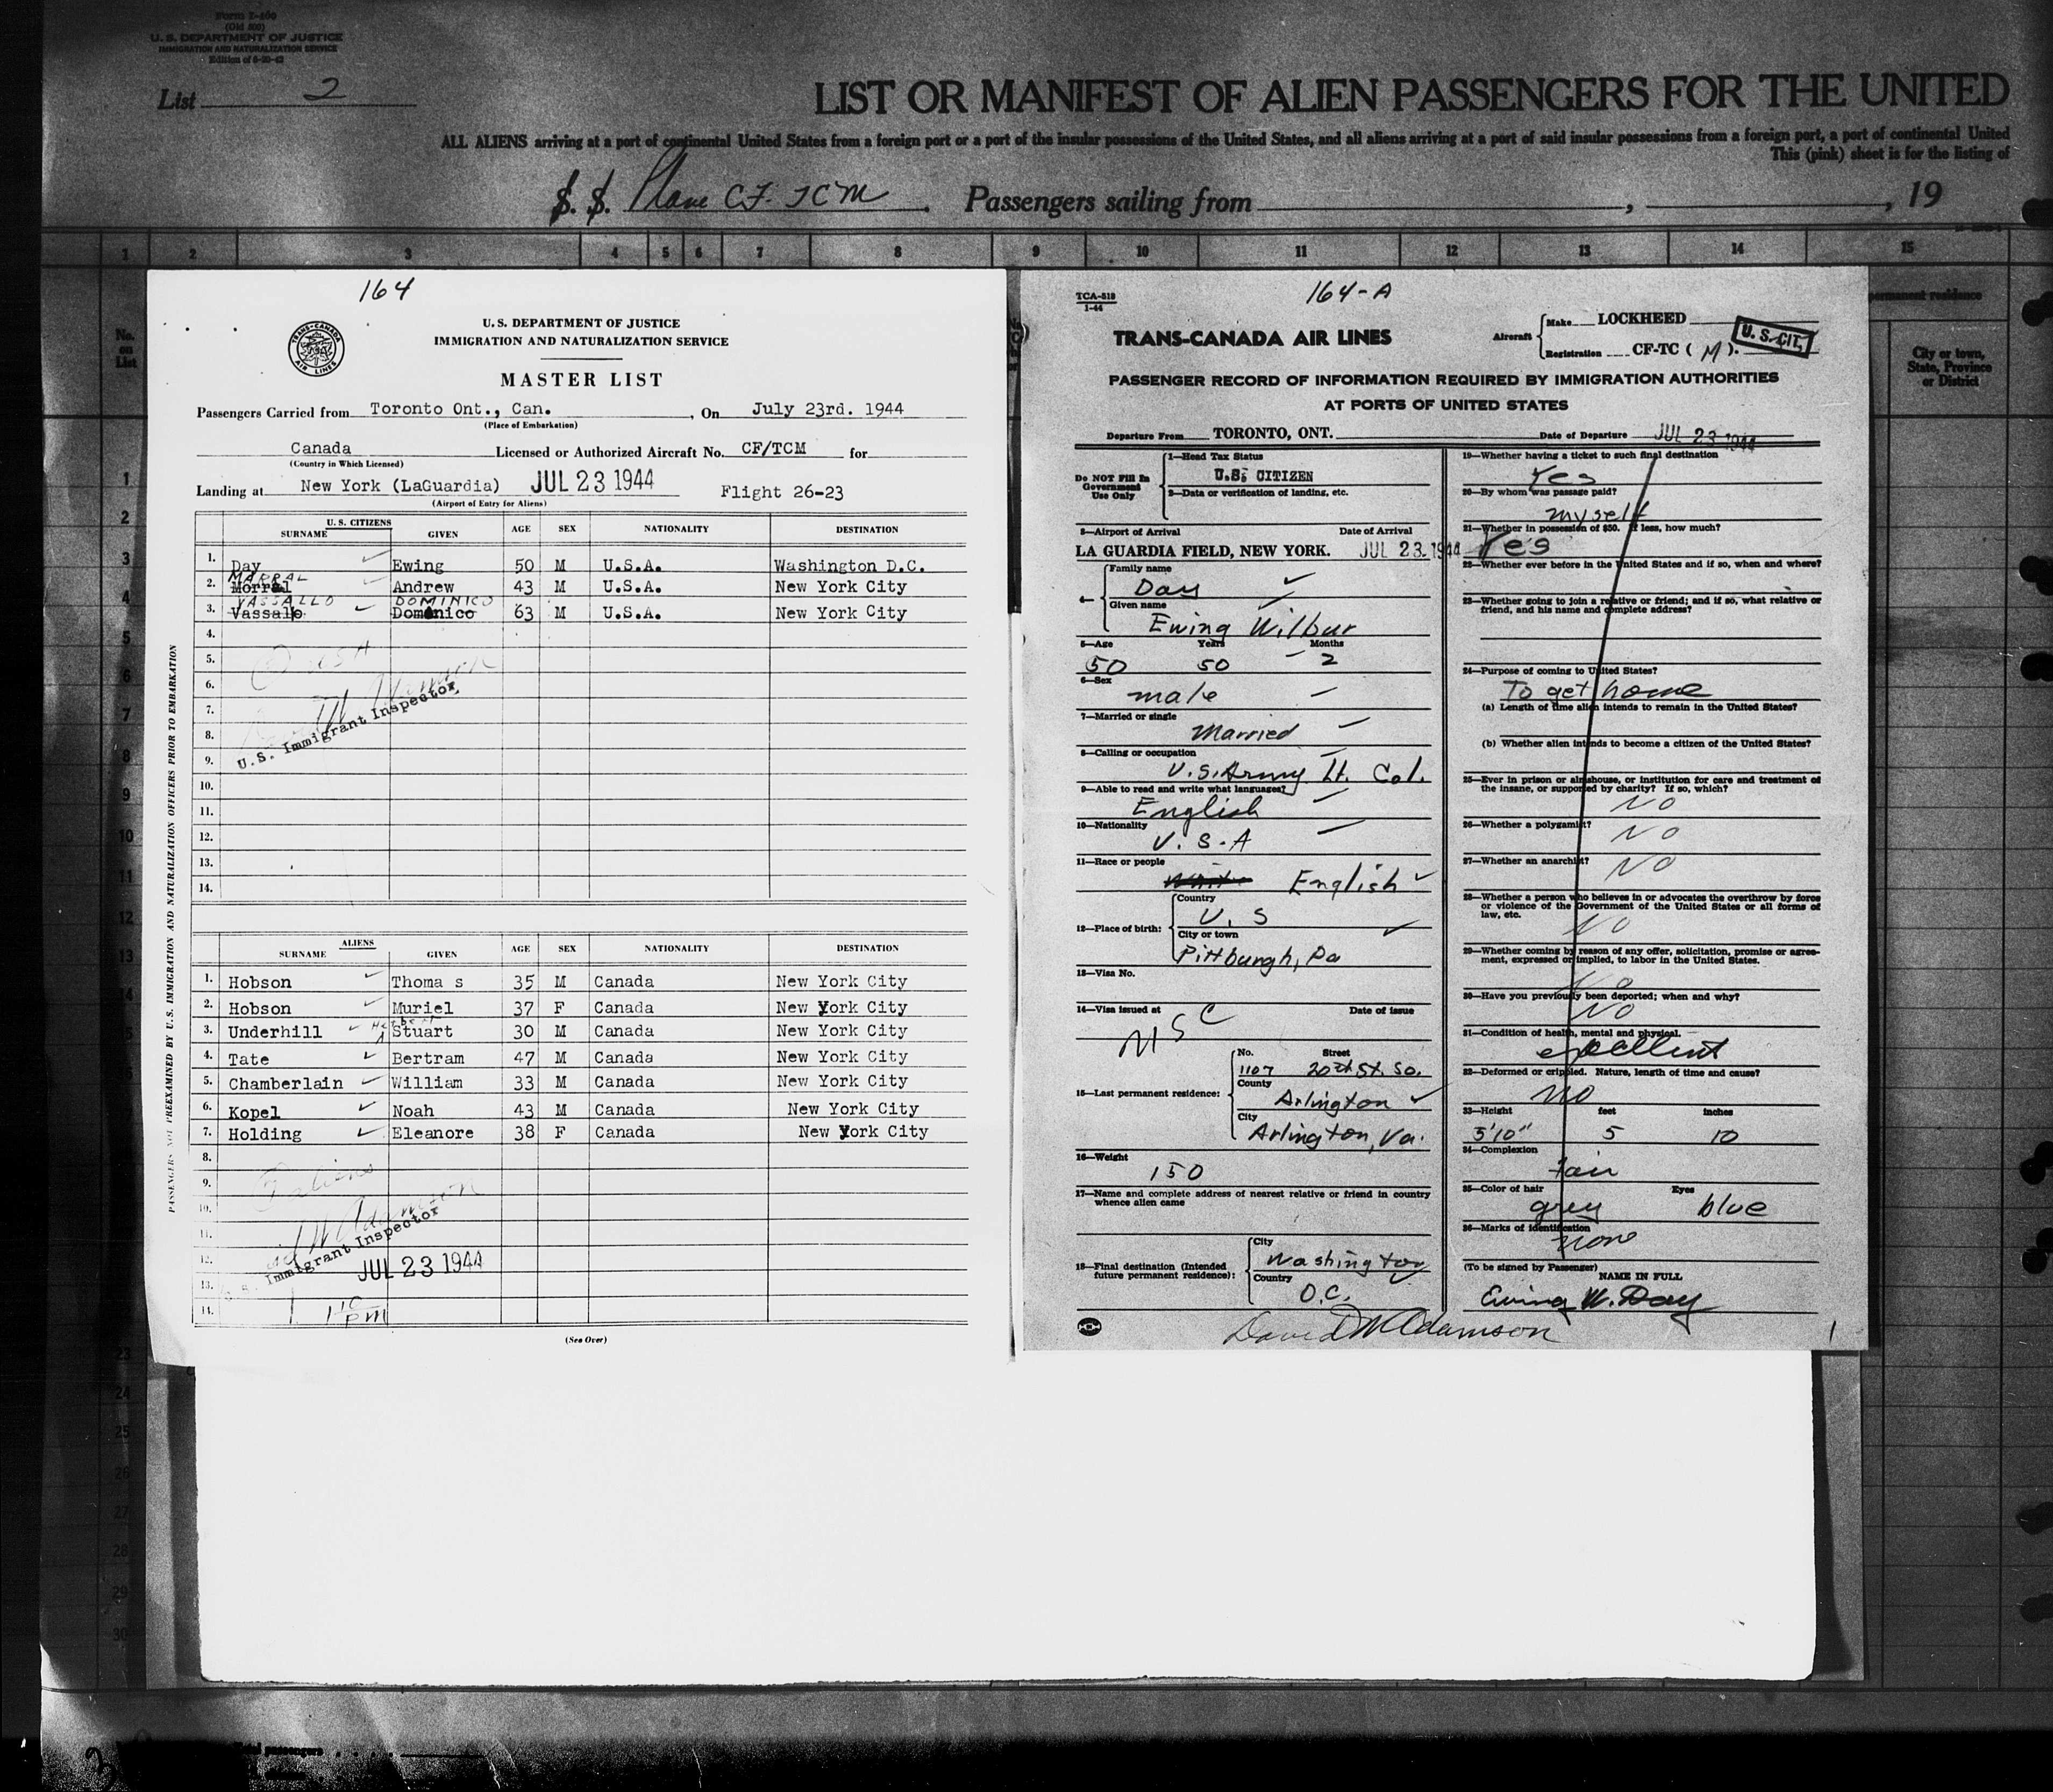 Form I-400
(Old 500)
U. S. DEPARTMENT OF JUSTICE
IMMIGRATION AND NATURALIZATION SERVICE
List 2
LIST OR MANIFEST OF ALIEN PASSENGERS FOR THE UNITED
ALL ALIENS arriving at a port of continental United States from a foreign port or a port of the insular possessions of the United States, and all aliens arriving at a port of said insular possessions from a foreign port, a port of continental United
This (pink) sheet is for the listing of
S. S. Plane CF. TCM . Passengers sailing from , , 19
1 2 3 4 5 6 7 8 9 10 11 12 13 14 15
No. on List
permanent residence
City or town, State, Province or District
164
TRANS-CANADA AIR LINES
U. S. DEPARTMENT OF JUSTICE
IMMIGRATION AND NATURALIZATION SERVICE
MASTER LIST
Passengers Carried from Toronto Ont., Can. , On July 23rd. 1944
(Place of Embarkation)
Canada Licensed or Authorized Aircraft No. CF/TCM for
(Country in Which Licensed)
Landing at New York (LaGuardia) JUL 23 1944 Flight 26-23
(Airport of Entry for Aliens)
U. S. CITIZENS
SURNAME GIVEN AGE SEX NATIONALITY DESTINATION
1. Day Ewing 50 M U.S.A. Washington D.C.
MARRAL
2. Morral Andrew 43 M U.S.A. New York City
VASSALLO DOMINICO
3. Vassalo Domenico 63 M U.S.A. New York City
4.
5.
6.
7.
8.
U.S. Immigrant Inspector
9.
10.
11.
12.
13.
14.
PASSENGERS NOT PREEXAMINED BY U.S. IMMIGRATION AND NATURALIZATION OFFICERS PRIOR TO EMBARKATION
ALIENS
SURNAME GIVEN AGE SEX NATIONALITY DESTINATION
1. Hobson Thoma s 35 M Canada New York City
2. Hobson Muriel 37 F Canada New York City
Herbert
3. Underhill Stuart 30 M Canada New York City
4. Tate Bertram 47 M Canada New York City
5. Chamberlain William 33 M Canada New York City
6. Kopel Noah 43 M Canada New York City
7. Holding Eleanore 38 F Canada New York City
8.
7 aliens
9.
10.
11.
12.
U.S. Immigrant Inspector
JUL 23 1944
13.
14.
1 10 pm
(See Over)
TCA-518
1-44
164-A
TRANS-CANADA AIR LINES
Aircraft Make LOCKHEED
Registration CF-TC ( M ).
U. S. CIT.
PASSENGER RECORD OF INFORMATION REQUIRED BY IMMIGRATION AUTHORITIES
AT PORTS OF UNITED STATES
Departure From TORONTO, ONT. Date of Departure JUL 23 1944
Do NOT Fill In Government Use Only
1—Head Tax Status
U.S. CITIZEN
2—Data or verification of landing, etc.
3—Airport of Arrival Date of Arrival
LA GUARDIA FIELD, NEW YORK. JUL 23 1944
4— Family name
Day
Given name
Ewing Wilbur
5—Age Years Months
50 50 2
6—Sex
male
7—Married or single
Married
8—Calling or occupation
U.S. Army Lt. Col.
9—Able to read and write what languages?
English
10—Nationality
U. S. A
11—Race or people
English
12—Place of birth: Country
U. S
City or town
Pittburgh, Pa
13—Visa No.
14—Visa issued at Date of issue
15—Last permanent residence: No. Street
1107 20th St. So.
County
Arlington
City
Arlington, Va.
16—Weight
150
17—Name and complete address of nearest relative or friend in country whence alien came
18—Final destination (Intended future permanent residence): City
Washington
Country
D.C.
David W Adamson
19—Whether having a ticket to such final destination
Yes
20—By whom was passage paid?
myself
21—Whether in possession of $50. If less, how much?
Yes
22—Whether ever before in the United States and if so, when and where?
23—Whether going to join a relative or friend; and if so, what relative or friend, and his name and complete address?
24—Purpose of coming to United States?
To get home
(a) Length of time alien intends to remain in the United States?
(b) Whether alien intends to become a citizen of the United States?
25—Ever in prison or almshouse, or institution for care and treatment of the insane, or supported by charity? If so, which?
No
26—Whether a polygamist?
No
27—Whether an anarchist?
No
28—Whether a person who believes in or advocates the overthrow by force or violence of the Government of the United States or all forms of law, etc.
No
29—Whether coming by reason of any offer, solicitation, promise or agreement, expressed or implied, to labor in the United States.
No
30—Have you previously been deported; when and why?
No
31—Condition of health, mental and physical.
excellent
32—Deformed or crippled. Nature, length of time and cause?
no
33—Height feet inches
5'10" 5 10
34—Complexion
fair
35—Color of hair Eyes
grey blue
36—Marks of identification
none
(To be signed by Passenger)
NAME IN FULL
Ewing W. Day
1